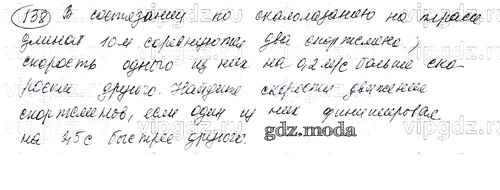 138) В состязании по скалолазанию на трассе
длиной 10м соревнуются два спортсмена,
скорость одного из них на 0,2 м/с больше ско-
рости другого. Найдите скорости движения
спортсменов, если один из них финишировал
на 45с быстрее другого.
gdz.moda
vipgdz.com